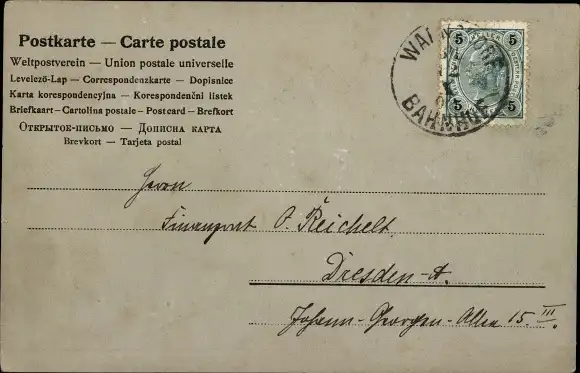 Postkarte — Carte postale
Weltpostverein — Union postale universelle
Levelező-Lap — Correspondenzkarte — Dopisnice
Karta korespondencyjna — Korespondenční lístek
Briefkaart - Cartolina postale - Post card - Brefkort
Открытое-письмо — Дописна карта
Brevkort — Tarjeta postal
5 5
5 5
BAHNHOF
Herrn
O. Reichelt
Dresden-A.
Johann-Georgen-Allee 15. III.